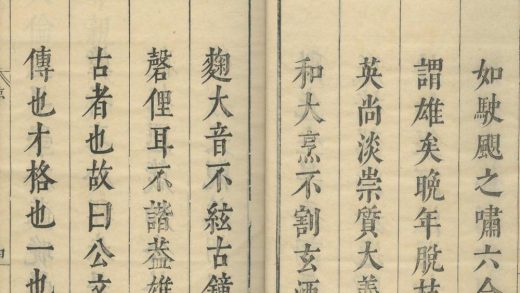 如駛颶之嘯六合
謂雄矣晚年脫
英尚淡崇質大羹
和大烹不割玄酒
麴大音不絃古鐘
磬俚耳不諧葢雄
古者也故曰公文
傳也才格也一也